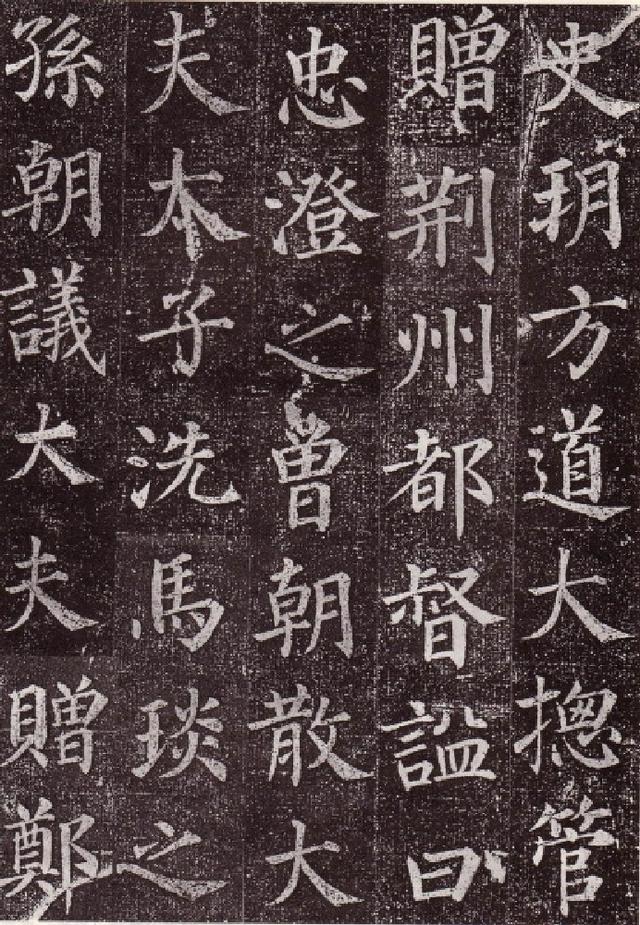 史朔方道大摠管
贈荆州都督謚曰
忠澄之曾朝散大
夫太子洗馬琰之
孫朝議大夫贈鄭